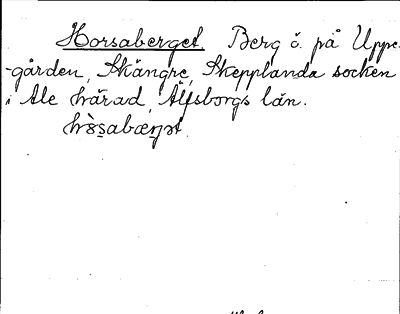 Horsaberget. Berg ö. på Uppe-
gården, Skängre, Skepplanda socken
i Ale härad, Älfsborgs län.